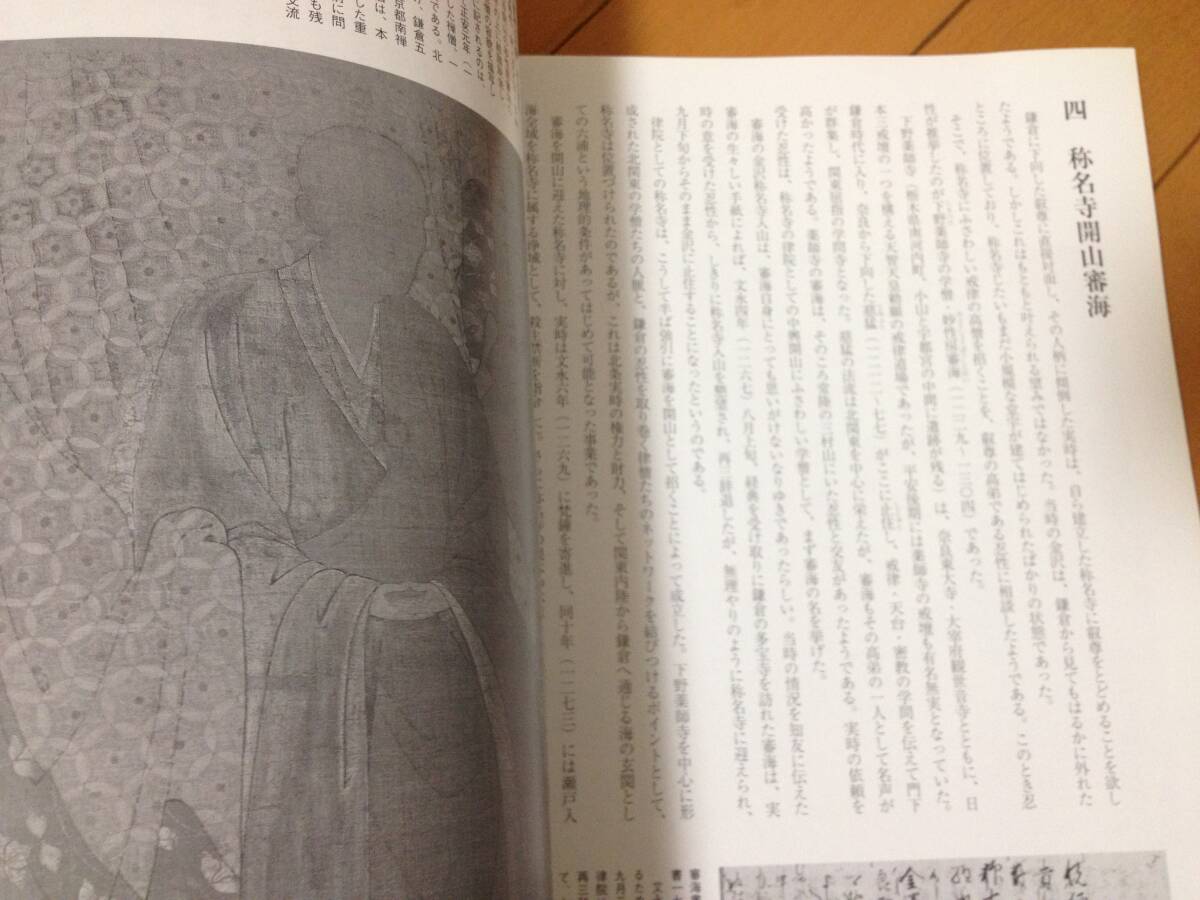 四　称名寺開山審海
鎌倉に下向した叡尊に直接対面し、その人柄に傾倒した実時は、自ら建立した称名寺に叡尊をとどめることを欲し
たようである。しかしこれはもともと叶えられる望みではなかった。当時の金沢は、鎌倉から見てもはるかに外れた
ところに位置しており、称名寺もたいもまだ小規模な堂宇が建てはじめられたばかりの状態であった。
そこで、称名寺にふさわしい戒律の高僧を招くことを、叡尊の高弟である忍性に相談したようである。このとき忍
性が推挙したのが下野薬師寺の学僧・妙性房審海（一二二九～一三〇四）であった。
下野薬師寺（栃木県南河内町、小山と宇都宮の中間に遺跡が残る）は、奈良東大寺・大宰府観世音寺とともに、日
本三戒壇の一つを構える天智天皇勅願の戒律道場であったが、平安後期には薬師寺の戒壇も有名無実となっていた。
鎌倉時代に入り、奈良から下向した慈猛（一二一二～七七）がここに止住し、戒律・天台・密教の学問を伝えて門下
が群集し、関東屈指の学問寺となった。慈猛の法流は北関東を中心に栄えたが、審海もその高弟の一人として名声が
高かったようである。薬師寺の審海は、そのころ常陸の三村山にいた忍性と交友があったようである。実時の依頼を
受けた忍性は、称名寺の律院としての中興開山にふさわしい学僧として、まず審海の名を挙げた。
審海の金沢称名寺入山は、審海自身にとっても思いがけないなりゆきであったらしい。当時の情況を知友に伝えた
審海の生々しい手紙によれば、文永四年（一二六七）八月上旬、経典を受け取りに鎌倉の多宝寺を訪れた審海は、実
時の意を受けた忍性から、しきりに称名寺入山を勧誘され、再三辞退したが、無理やりのように称名寺に迎えられ、
九月下旬からそのまま金沢に止住することになったというのである。
律院としての称名寺は、こうして半ば強引に審海を開山として招くことによって成立した。下野薬師寺を中心に形
成された北関東の学僧たちの人脈と、鎌倉の忍性を取り巻く律僧たちのネットワークを結びつけるポイントとして、
称名寺は位置づけられたのであるが、これは北条実時の権力と財力、そして関東内陸から鎌倉へ通じる海の玄関とし
ての六浦という地理的条件があってはじめて可能となった事業であった。
審海を開山に迎えた称名寺に対し、実時は文永六年（一二六九）に梵鐘を寄進し、同十年（一二七三）には瀬戸入
海の全域を称名寺に属する浄域として、殺生禁断を
審海
書一
文
るため
九月
律院
再三
て、
正安元年（一
した禅僧、一
である。北
が、鎌倉五
京都南禅
者は、本
した重
前に問
も残
交流